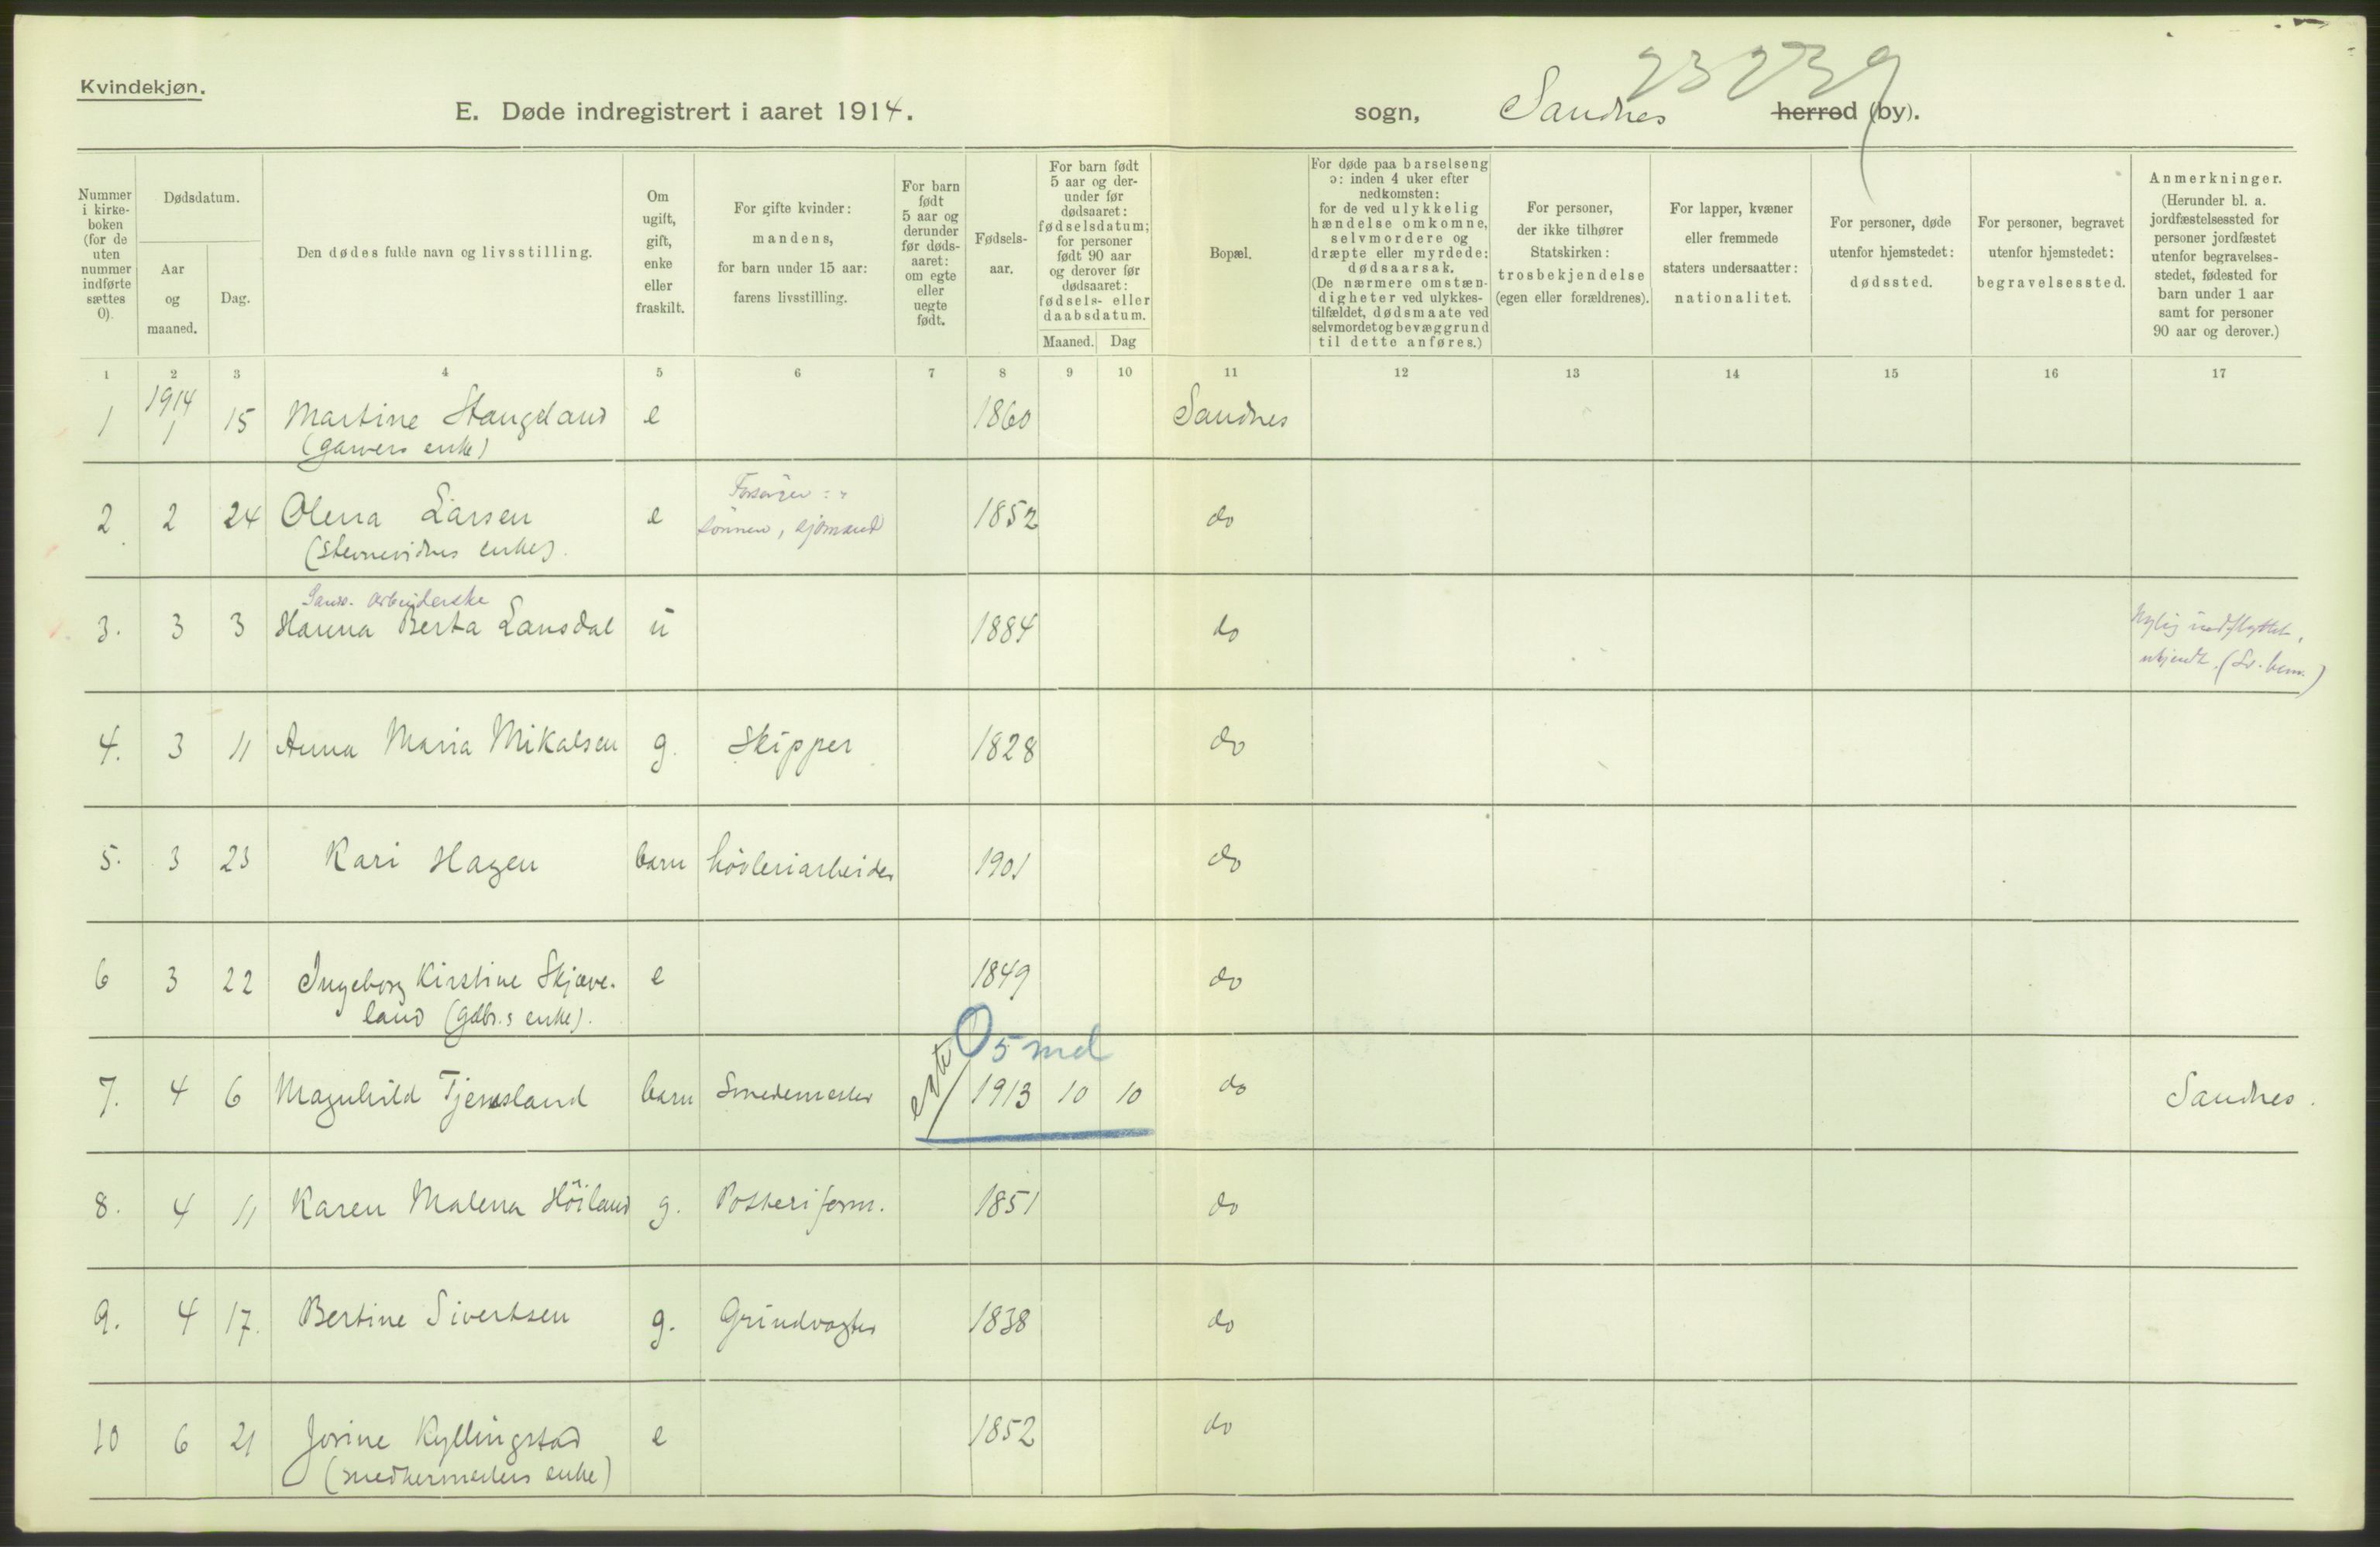 Kvindekjøn.
23 23 9
E. Døde indregistrert i aaret 1914.
sogn, Sandnes herred (by).
Nummer i kirke-boken (for de uten nummer indførte sættes 0).
Dødsdatum.
Aar og maaned.
Dag.
Den dødes fulde navn og livsstilling.
Om ugift, gift, enke eller fraskilt.
For gifte kvinder: mandens, for barn under 15 aar: farens livsstilling.
For barn født 5 aar og derunder før døds-aaret: om egte eller uegte født.
Fødsels-aar.
For barn født 5 aar og der-under før dødsaaret: fødselsdatum; for personer født 90 aar og derover før dødsaaret: fødsels- eller daabsdatum.
Maaned. Dag
Bopæl.
For døde paa barselseng ɔ: inden 4 uker efter nedkomsten: for de ved ulykkelig hændelse omkomne, selvmordere og dræpte eller myrdede: dødsaarsak. (De nærmere omstæn-digheter ved ulykkes-tilfældet, dødsmaate ved selvmordet og bevæggrund til dette anføres.)
For personer, der ikke tilhører Statskirken: trosbekjendelse (egen eller forældrenes).
For lapper, kvæner eller fremmede staters undersaatter: nationalitet.
For personer, døde utenfor hjemstedet: dødssted.
For personer, begravet utenfor hjemstedet: begravelsessted.
Anmerkninger. (Herunder bl. a. jordfæstelsessted for personer jordfæstet utenfor begravelses-stedet, fødested for barn under 1 aar samt for personer 90 aar og derover.)
1 2 3 4 5 6 7 8 9 10 11 12 13 14 15 16 17
1914
1 1 15 Martine Stangeland e 1860 Sandnes
(garvers enke)
Forsørger:
2 2 24 Olena Larsen e sønnen, sjømand 1852 do
(Stevnevidnes enke).
arbeiderske
3. 3 3 Hanna Berta Lansdal u 1884 do
Nylig indflyttet,
ukjendt.
4. 3 11 Anna Maria Mikalsen g. Skipper 1828 do
5. 3 23 Kari Hagen barn høvleriarbeider 1901 do
6 3 22 Ingeborg Kirstine Skjæve- e 1849 do
land (gdbr.s enke).
0 5 md
7. 4 6 Magnhild Tjensland barn Smedemester egte 1913 10 10 do Sandnes.
8. 4 11 Karen Malena Höiland g. Potteriform. 1851 do
9. 4 17. Bertine Sivertsen g. Grindvogter 1838 do
10 6 21 Jorine Kyllingstad e 1852 do
(snedkermesters enke)